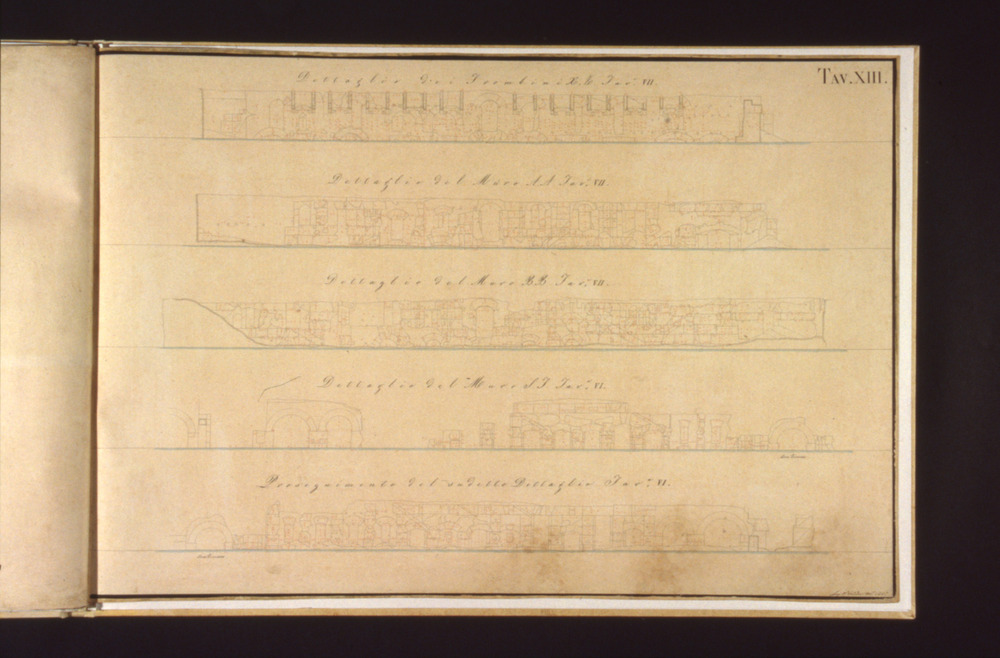 TAV. XIII.
Dettaglio dei Tav.ª VII
Dettaglio del Muro AA Tav.ª VII
Dettaglio del Muro BB Tav.ª VII.
Dettaglio del Muro Tav.ª VI.
Proseguimento del sudetto Dettaglio Tav.ª VI.